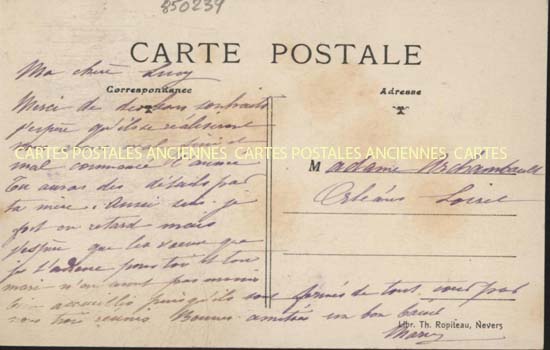 850239
CARTE POSTALE
Ma chère Lucy
Correspondance
Adresse
Merci de bons souhaits
j'espère qu'ils se réaliseront
CARTES POSTALES ANCIENNES CARTES POSTALES ANCIENNES CARTES
mal commencé l'année
Tu auras des détails par
ta mère. Aussi suis-je
fort en retard mais
j'espère que les vœux que
je t'adresse pour toi et ton
mari n'en sont pas moins
accueillis puisqu'ils sont formés de tout cœur par
nous trois réunis Bonnes amitiés un bon baiser
Marcy
Madame Archambault
Orléans Loiret
Libr. Th. Ropiteau, Nevers